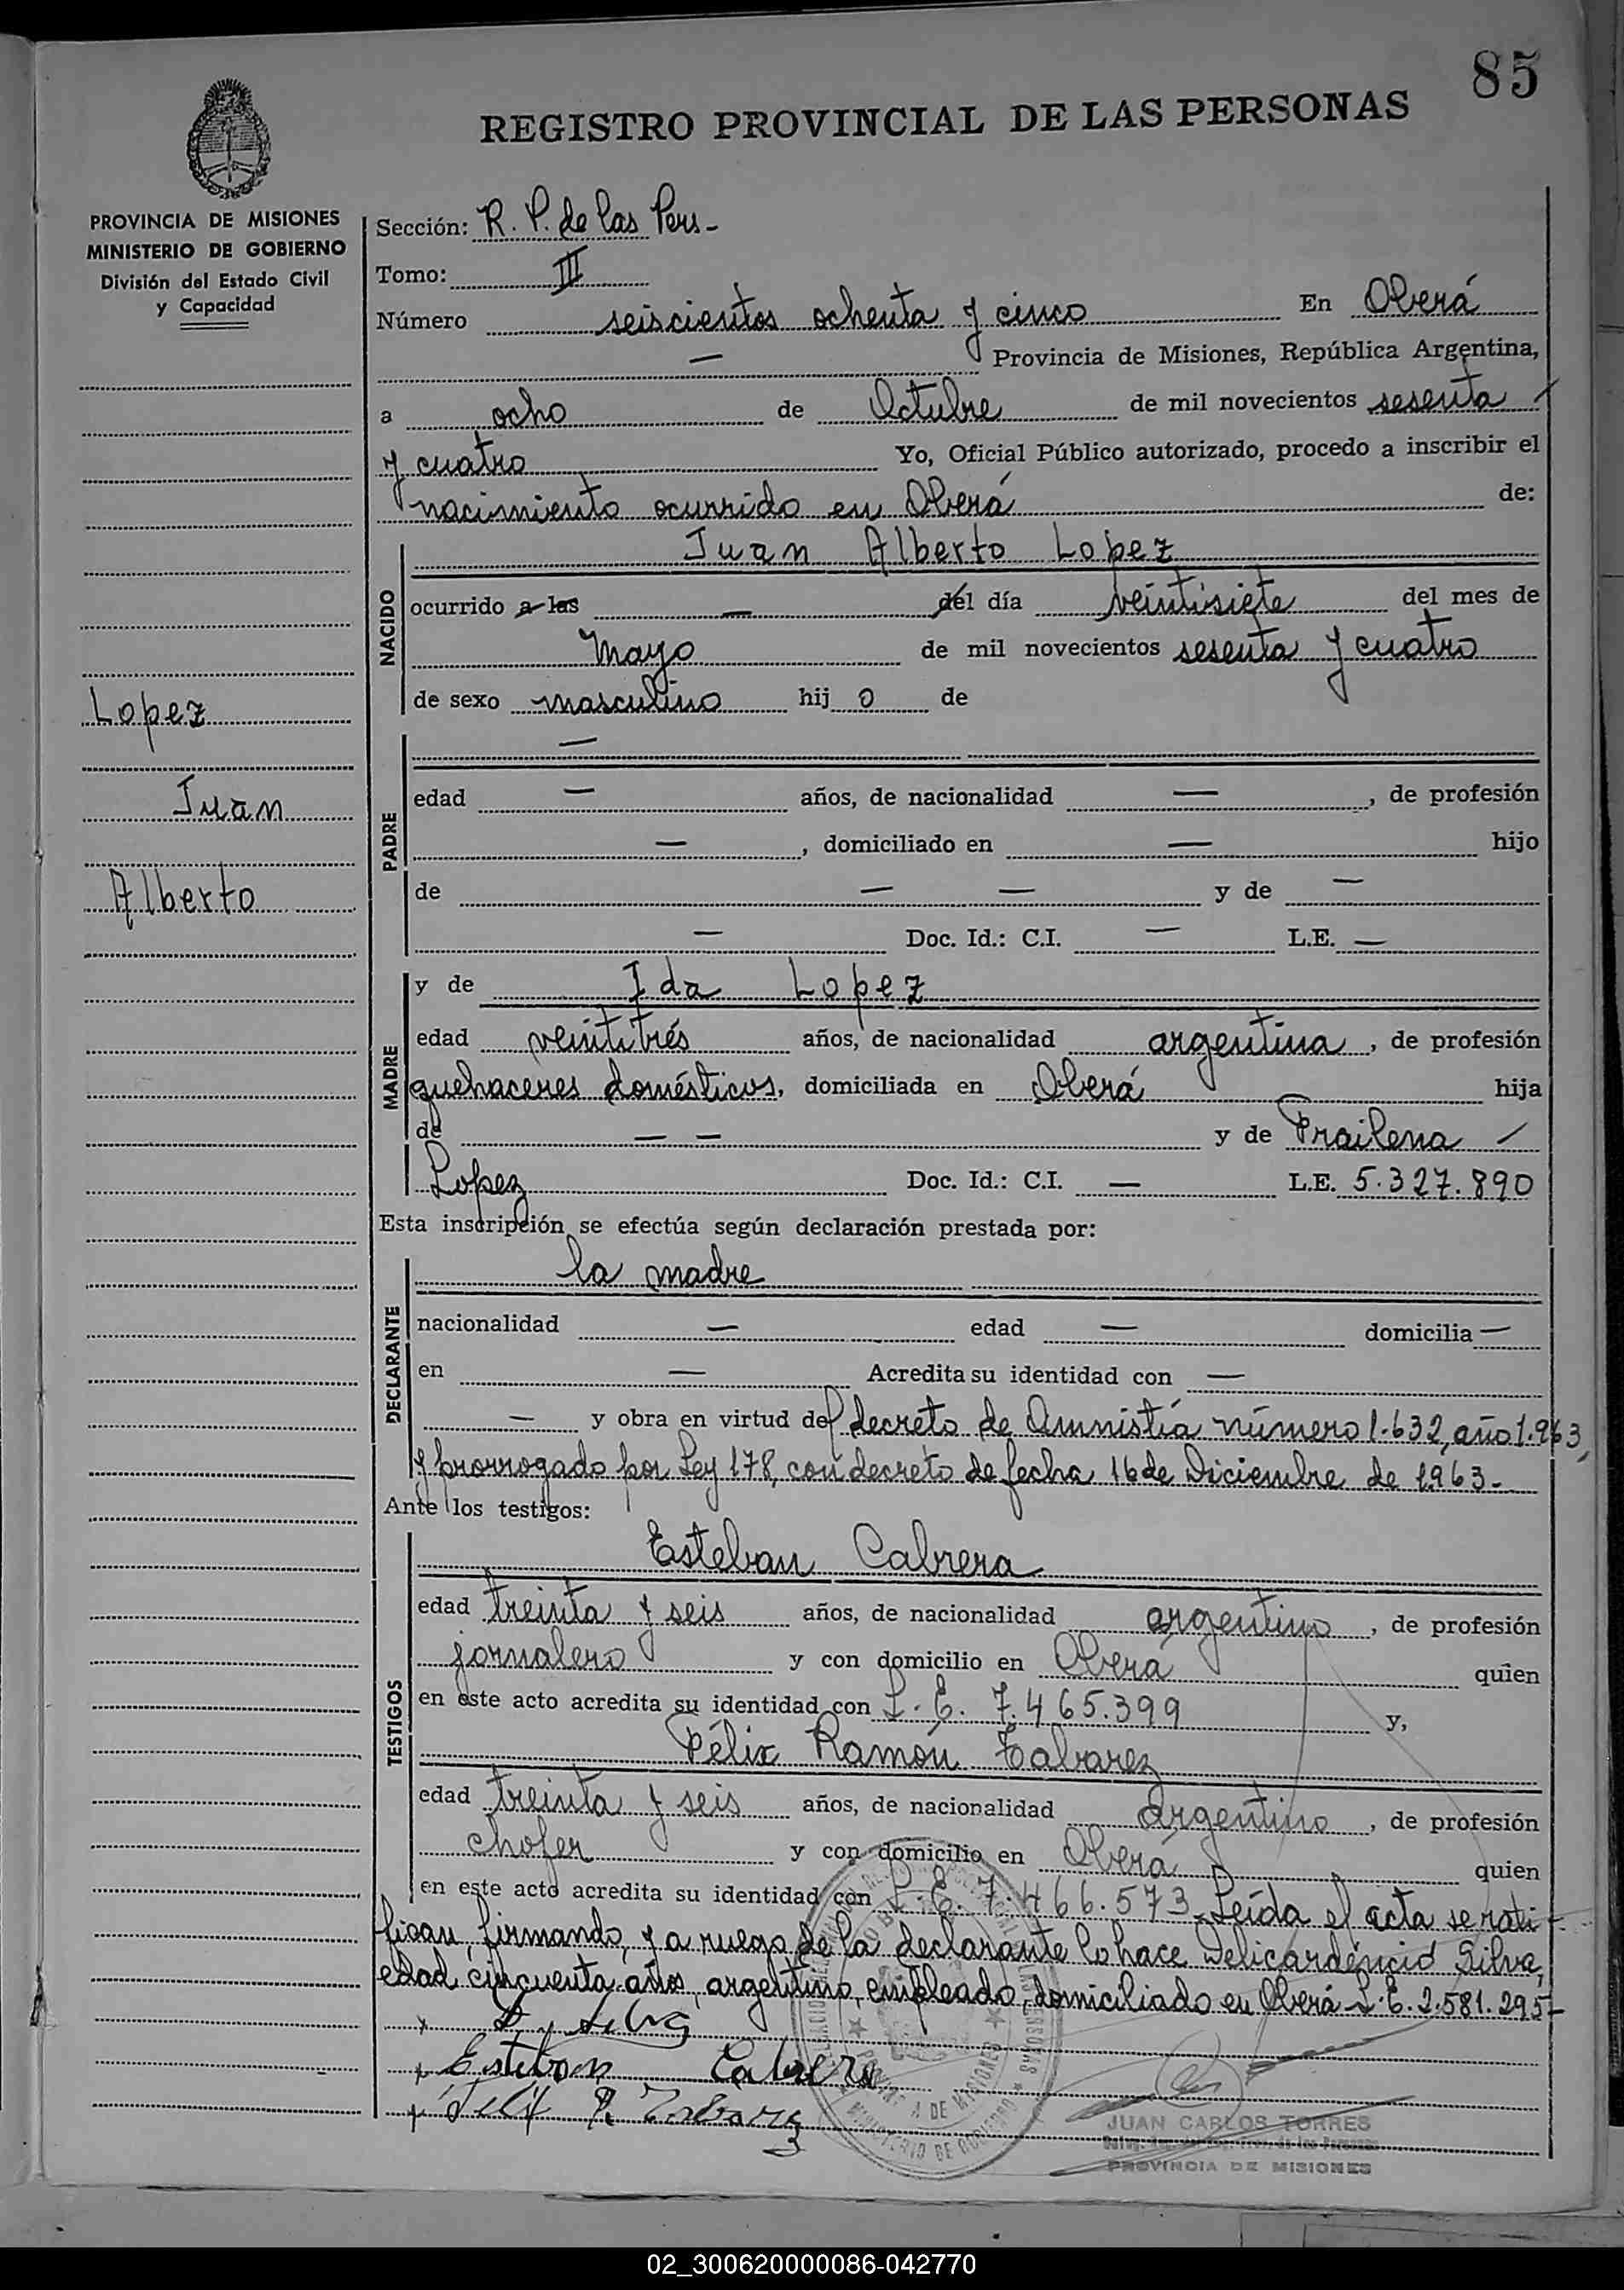 85
REGISTRO PROVINCIAL DE LAS PERSONAS
PROVINCIA DE MISIONES
MINISTERIO DE GOBIERNO
División del Estado Civil
y Capacidad
Lopez
Juan
Alberto
Sección: R. P. de las Pers-
Tomo: III
Número seiscientos ochenta y cinco En Oberá
— Provincia de Misiones, República Argentina,
a ocho de Octubre de mil novecientos sesenta
y cuatro Yo, Oficial Público autorizado, procedo a inscribir el
nacimiento ocurrido en Oberá de:
NACIDO
Juan Alberto Lopez
ocurrido a las — del día veintisiete del mes de
Mayo de mil novecientos sesenta y cuatro
de sexo masculino hij o de
PADRE
—
edad — años, de nacionalidad —, de profesión
—, domiciliado en — hijo
de — — y de —
— Doc. Id.: C.I. — L.E. —
MADRE
y de Ida Lopez
edad veintitrés años, de nacionalidad argentina, de profesión
quehaceres domésticos, domiciliada en Oberá hija
de — — y de
Lopez Doc. Id.: C.I. — L.E. 5.327.890
Esta inscripción se efectúa según declaración prestada por:
DECLARANTE
la madre
nacionalidad — edad — domicilia —
en — Acredita su identidad con —
— y obra en virtud del decreto de Amnistía número 1.632, año 1.963,
y prorrogado por Ley 178, con decreto de fecha 16 de Diciembre de 1.963.-
Ante los testigos:
TESTIGOS
Esteban Cabrera
edad treinta y seis años, de nacionalidad argentino, de profesión
jornalero y con domicilio en Oberá quien
en este acto acredita su identidad con L. E. 7.465.399 y,
Félix Ramón Tabarez
edad treinta y seis años, de nacionalidad argentino, de profesión
chofer y con domicilio en Oberá quien
en este acto acredita su identidad con L. E. 7.466.573. Leída el acta se rati-
fican, firmando, y a ruego de la declarante lo hace Silva,
edad cincuenta años, argentino, empleado, domiciliado en Oberá L. E. 2.581.295-
Silva
Esteban Cabrera
Felix R. Tabarez
JUAN CARLOS TORRES
PROVINCIA DE MISIONES
02_300620000086-042770